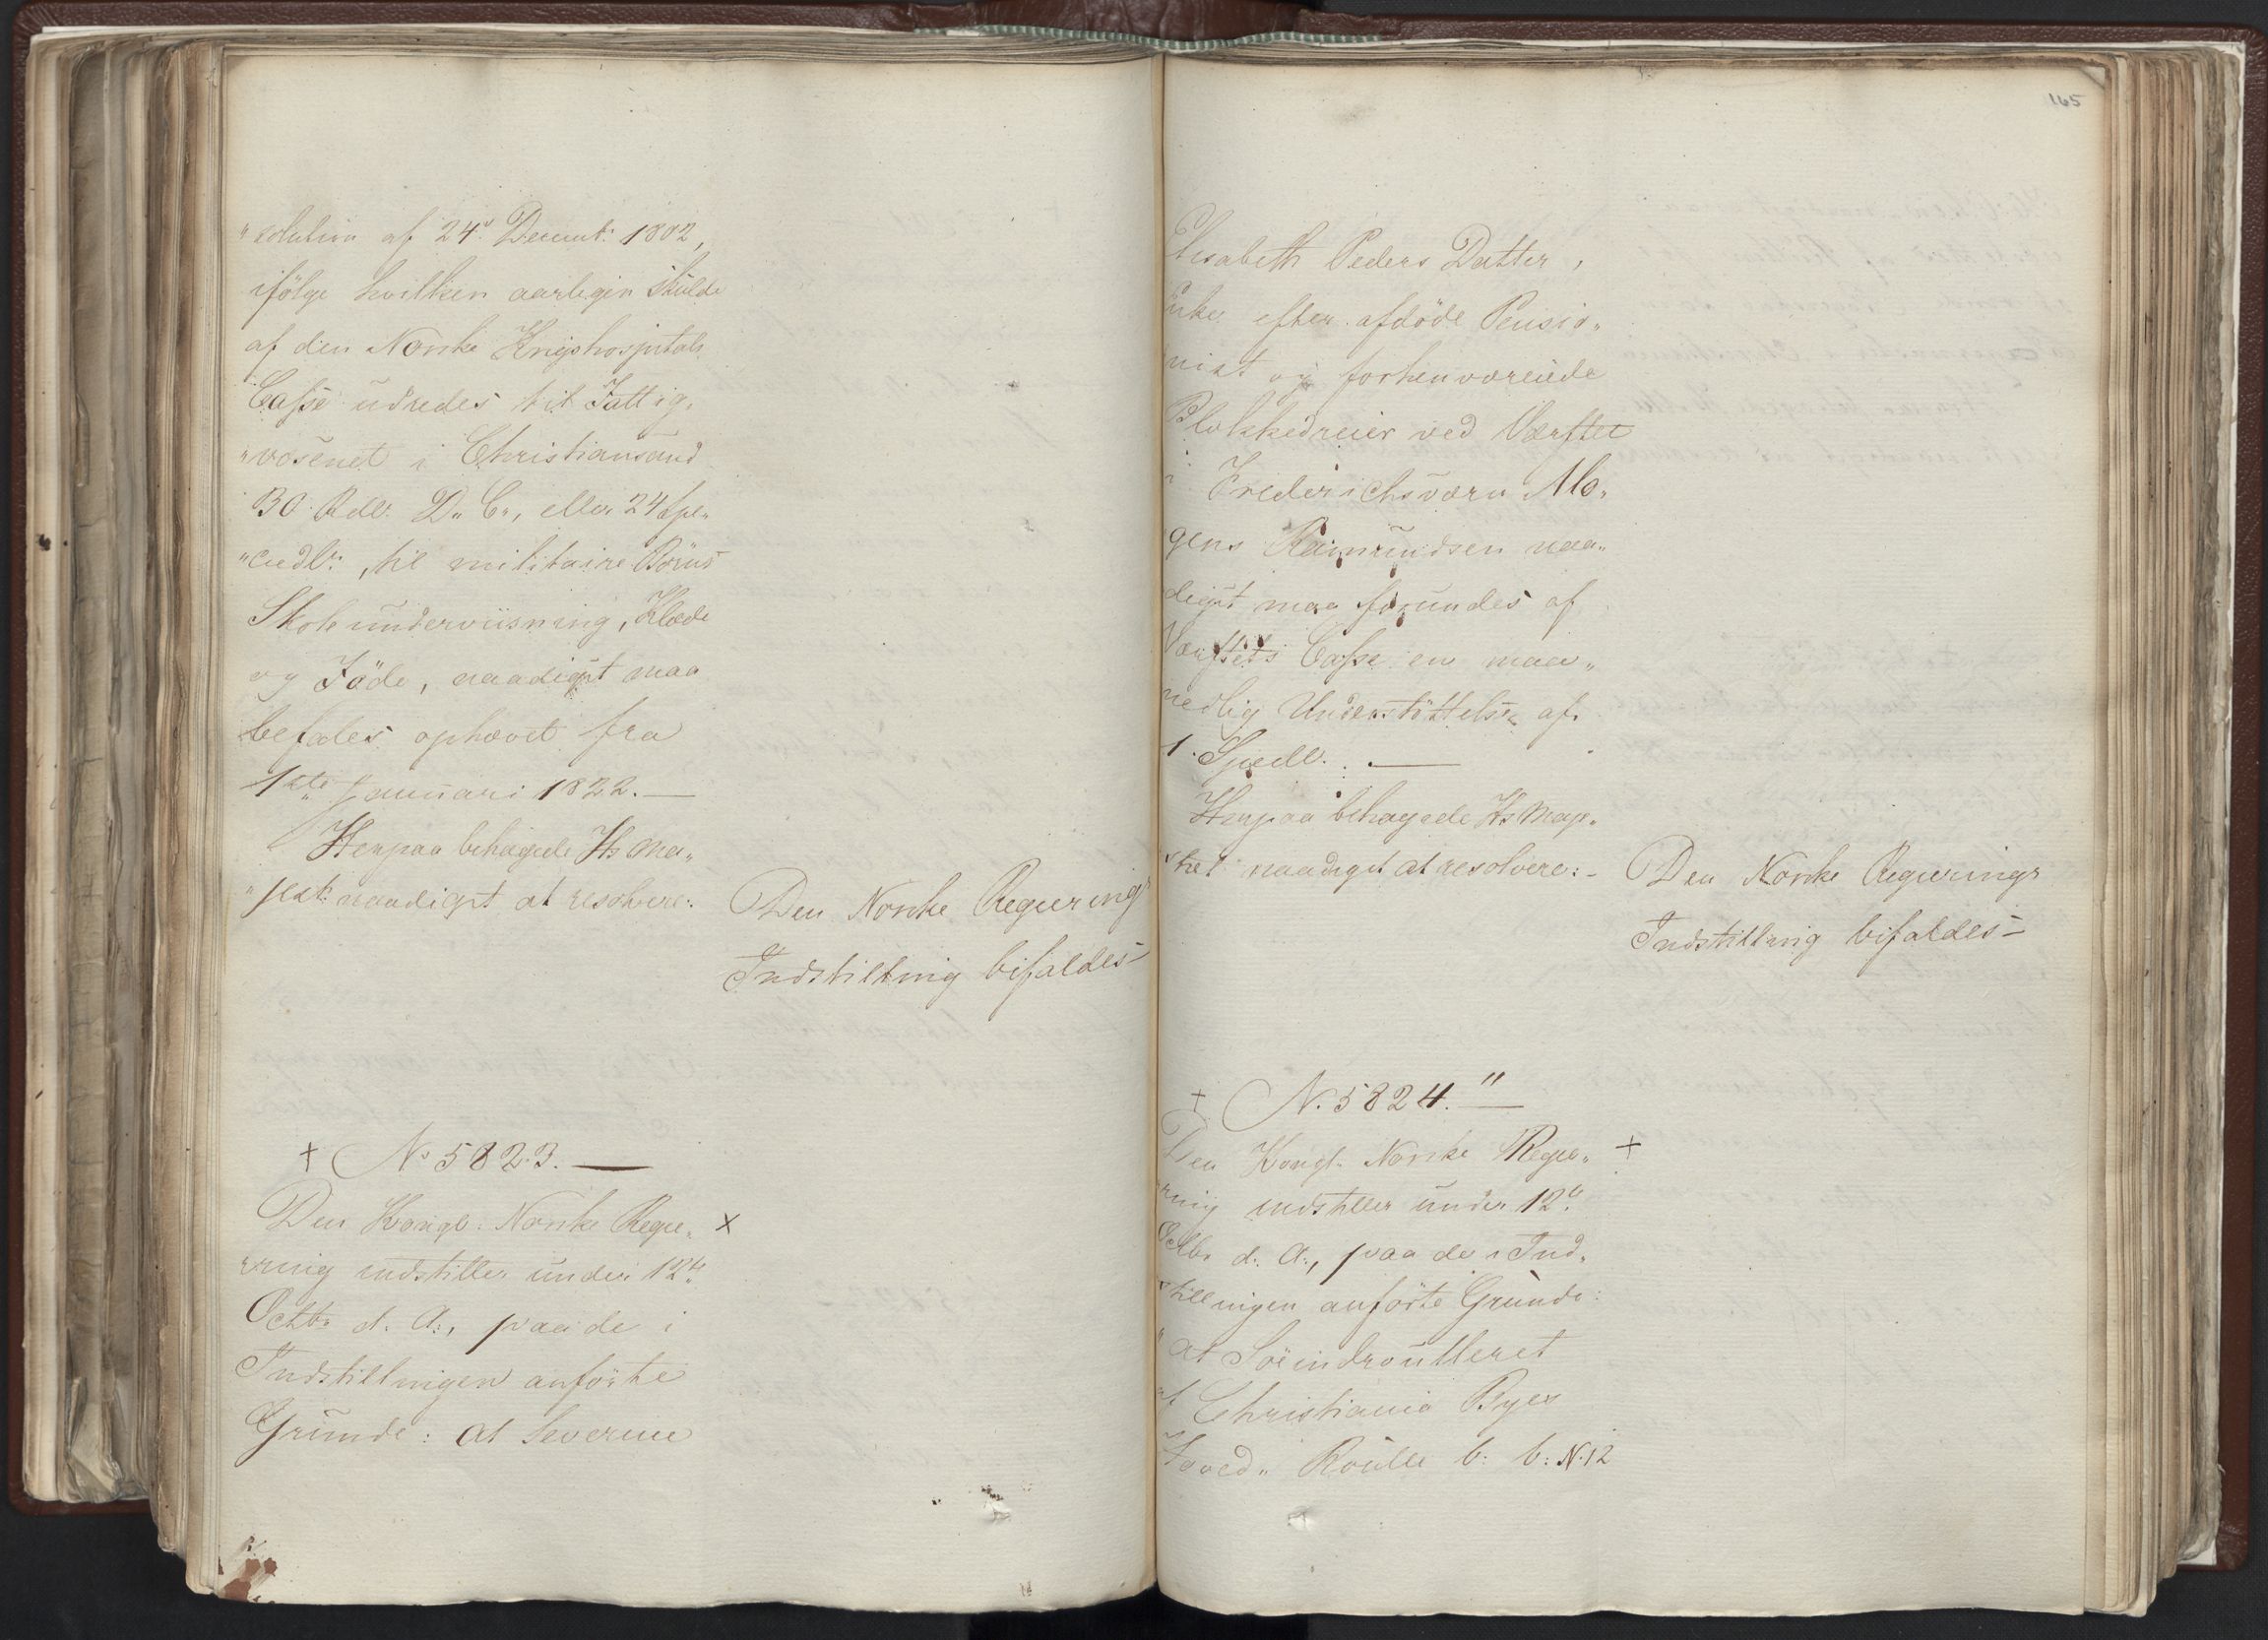 "solution af 24de Decembr: 1802,
ifölge hvilken aarligen skulde
af den Norske Krigshospitals
Casse udredes til Fattig„
„væsenet i Christiansand
30 Rdlr. D. C., eller 24 Spe„
„ciedlr:, til militaire Börns
Skoleunderviisning, Klæde
og Föde, naadigst maa
befales ophævet fra
1ste Januari 1822.—
Herpaa behagede Hs Ma„
„jest: naadigst at resolvere:
Den Norske Regierings
Indstilling bifaldes—
+ No 5823.—
Den Kongl. Norske Regie„ x
„ring indstiller under 12te
Octbr d. A., paa de i
Indstillingen anförte
Grunde: at Severine
165
Elisabeth Peders Datter,
Enke efter afdöde Pensio„
nist og forhenværende
Blokkedreier ved Værftet
i Friderichsværn Mo„
gens Raimundsen naa„
digst maa forundes af
Værftets Casse en maa„
nedlig Understöttelse af
1. Speidlr.—
Herpaa behagede Hs Maje„
stet naadigst at resolvere:—
Den Norske Regierings
Indstilling bifaldes—
+ N. 5824."—
Den Kongl. Norske Regie„ +
ring indstiller under 12te
Octbr d. A., paa de i Ind„
stillingen anförte Grunde:
at Söeindroulleret
af Christiania Byes
Hoved„ Roulle b: b: N.12